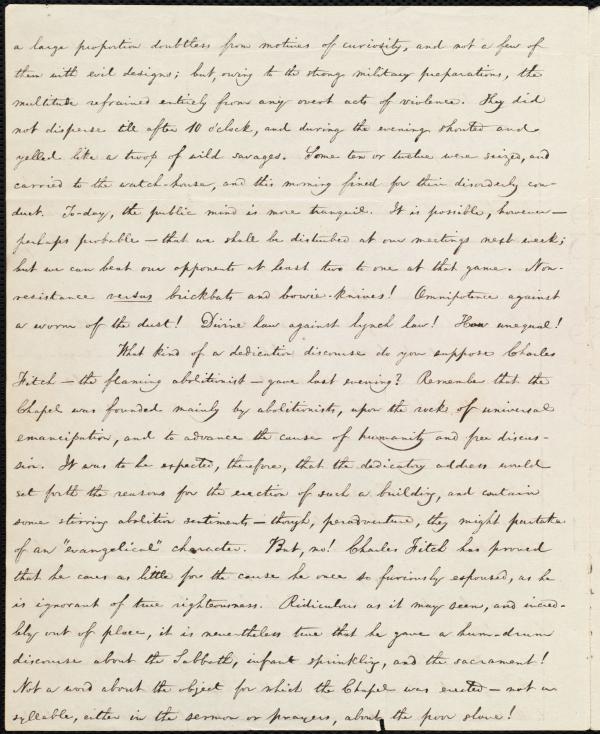 a large proportion doubtless from motives of curiosity, and not a few of
them with evil designs; but, owing to the strong military preparations, the
multitude refrained entirely from any overt acts of violence. They did
not disperse till after 10 o'clock, and during the evening shouted and
yelled like a troop of wild savages. Some ten or twelve were seized, and
carried to the watch-house, and this morning fined for their disorderly con-
duct. To-day, the public mind is more tranquil. It is possible, however—
perhaps probable—that we shall be disturbed at our meetings next week;
but we can beat our opponents at least two to one at that game. Non-
resistance versus brickbats and bowie-knives! Omnipotence against
a worm of the dust! Divine law against lynch law! How unequal!
What kind of a dedication discourse do you suppose Charles
Fitch—the flaming abolitionist—gave last evening? Remember that the
Chapel was founded mainly by abolitionists, upon the rock of universal
emancipation, and to advance the cause of humanity and free discus-
sion. It was to be expected, therefore, that the dedicatory address would
set forth the reasons for the erection of such a building, and contain
some stirring abolition sentiments—though, peradventure, they might partake
of an "evangelical" character. But, no! Charles Fitch has proved
that he cares as little for the cause he once so furiously espoused, as he
is ignorant of true righteousness. Ridiculous as it may seem, and incred-
bly out of place, it is nevertheless true that he gave a hum-drum
discourse about the Sabbath, infant sprinkling, and the sacrament!
Not a word about the object for which the Chapel was erected—not a
syllable, either in the sermon or prayers, about the poor slave!